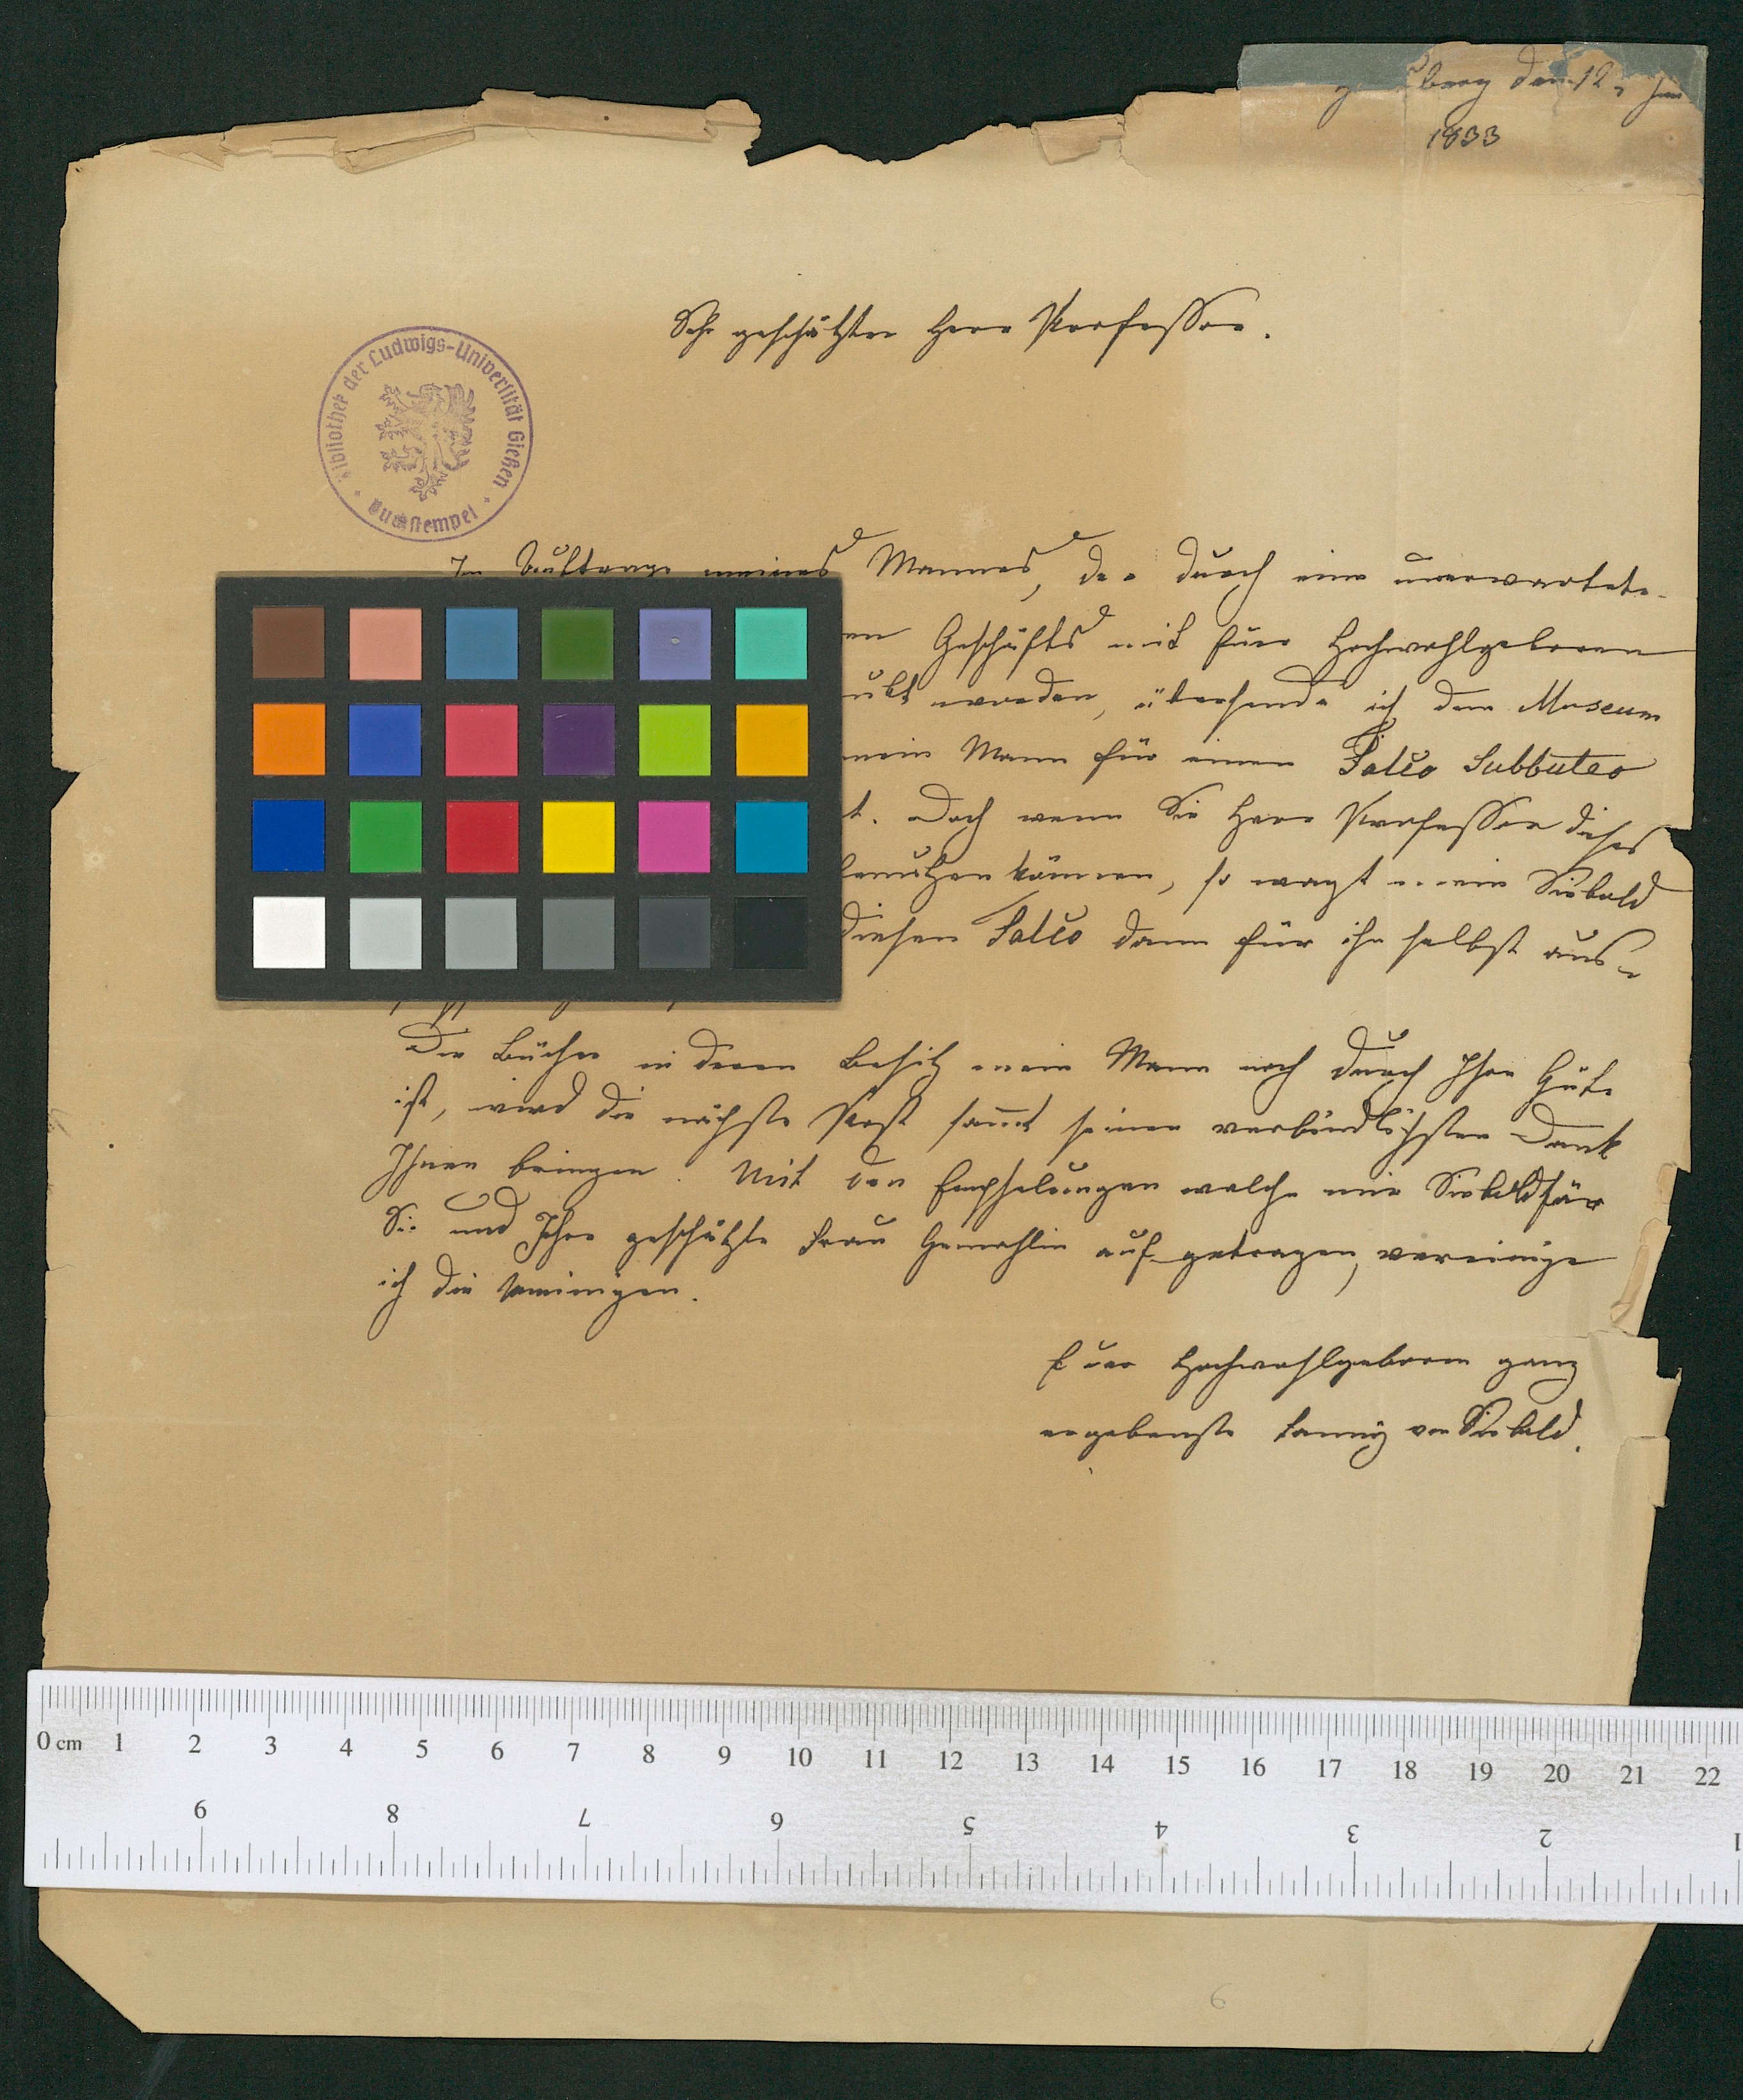 berg den 12. Jun
1833
Sehr geschätzter Herr Professor.
Bibliothek der Ludwigs-Universität Gießen
Buchstempel
Im Auftrage meines Mannes, der durch eine unerwartete
en Geschäfts mit Euer Hochwohlgeboren
ubt worden, übersende ich dem Museum
mein Mann für einen Falco Subbuteo
t. Doch wenn Sie Herr Professor dieses
benutzen können, so wagt mein Siebold
diesen Falco dann für ihn selbst aus-
Die Bücher in deren Besitz mein Mann noch durch Ihre Güte
ist, wird die nächste Post sammt seinen verbindlichsten Dank
Ihnen bringen. Mit den Empfehlungen welche mir Siebold für
Sie und Ihre geschätzte Frau Gemahlin aufgetragen, vereinige
ich die meinigen.
Euer Hochwohlgeboren ganz
ergebenste Fanny von Siebold.
0 cm 1 2 3 4 5 6 7 8 9 10 11 12 13 14 15 16 17 18 19 20 21 22
9 8 7 6 5 4 3 2 1
6